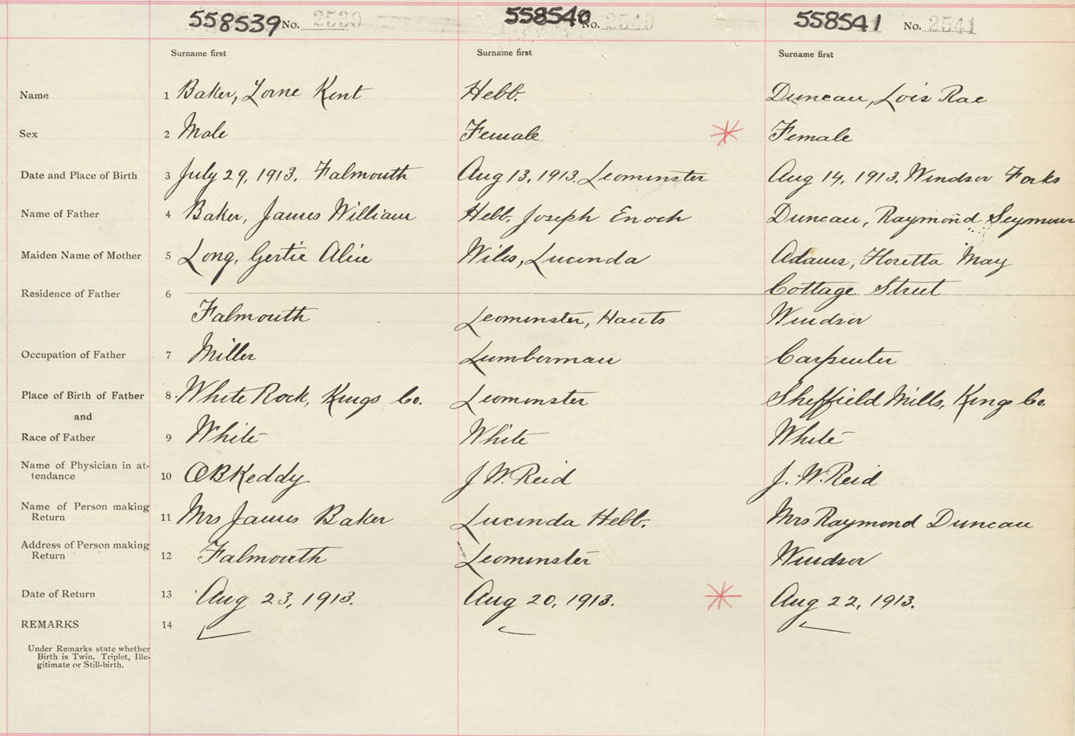 558539 No. 2539 558540 No. 2540 558541 No. 2541
Surname first Surname first Surname first
Name 1 Baker, Lorne Kent Hebb. Duncan, Lois Rae
Sex 2 Male Female Female
Date and Place of Birth 3 July 29, 1913. Falmouth Aug 13, 1913. Leominster Aug 14, 1913. Windsor Forks
Name of Father 4 Baker, James William Hebb, Joseph Enoch Duncan, Raymond Seymour
Maiden Name of Mother 5 Long, Gertie Alice Wiles, Lucinda Adams, Floretta May
Residence of Father 6 Cottage Street
Falmouth Leominster, Hants Windsor
Occupation of Father 7 Miller Lumberman Carpenter
Place of Birth of Father 8. White Rock, Kings Co. Leominster Sheffield Mills, Kings Co.
and
Race of Father 9 White White White
Name of Physician in at-
tendance 10 OBKeddy J W. Reid J. W. Reid
Name of Person making
Return 11 Mrs James Baker Lucinda Hebb. Mrs Raymond Duncan
Address of Person making
Return 12 Falmouth Leominster Windsor
Date of Return 13 Aug 23, 1913. Aug 20, 1913. Aug 22, 1913.
REMARKS 14
Under Remarks state whether
Birth is Twin, Triplet, Ille-
gitimate or Still-birth.